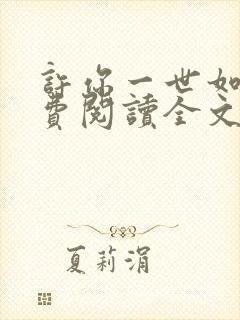 許你一世如
費閱讀全文
夏莉涓